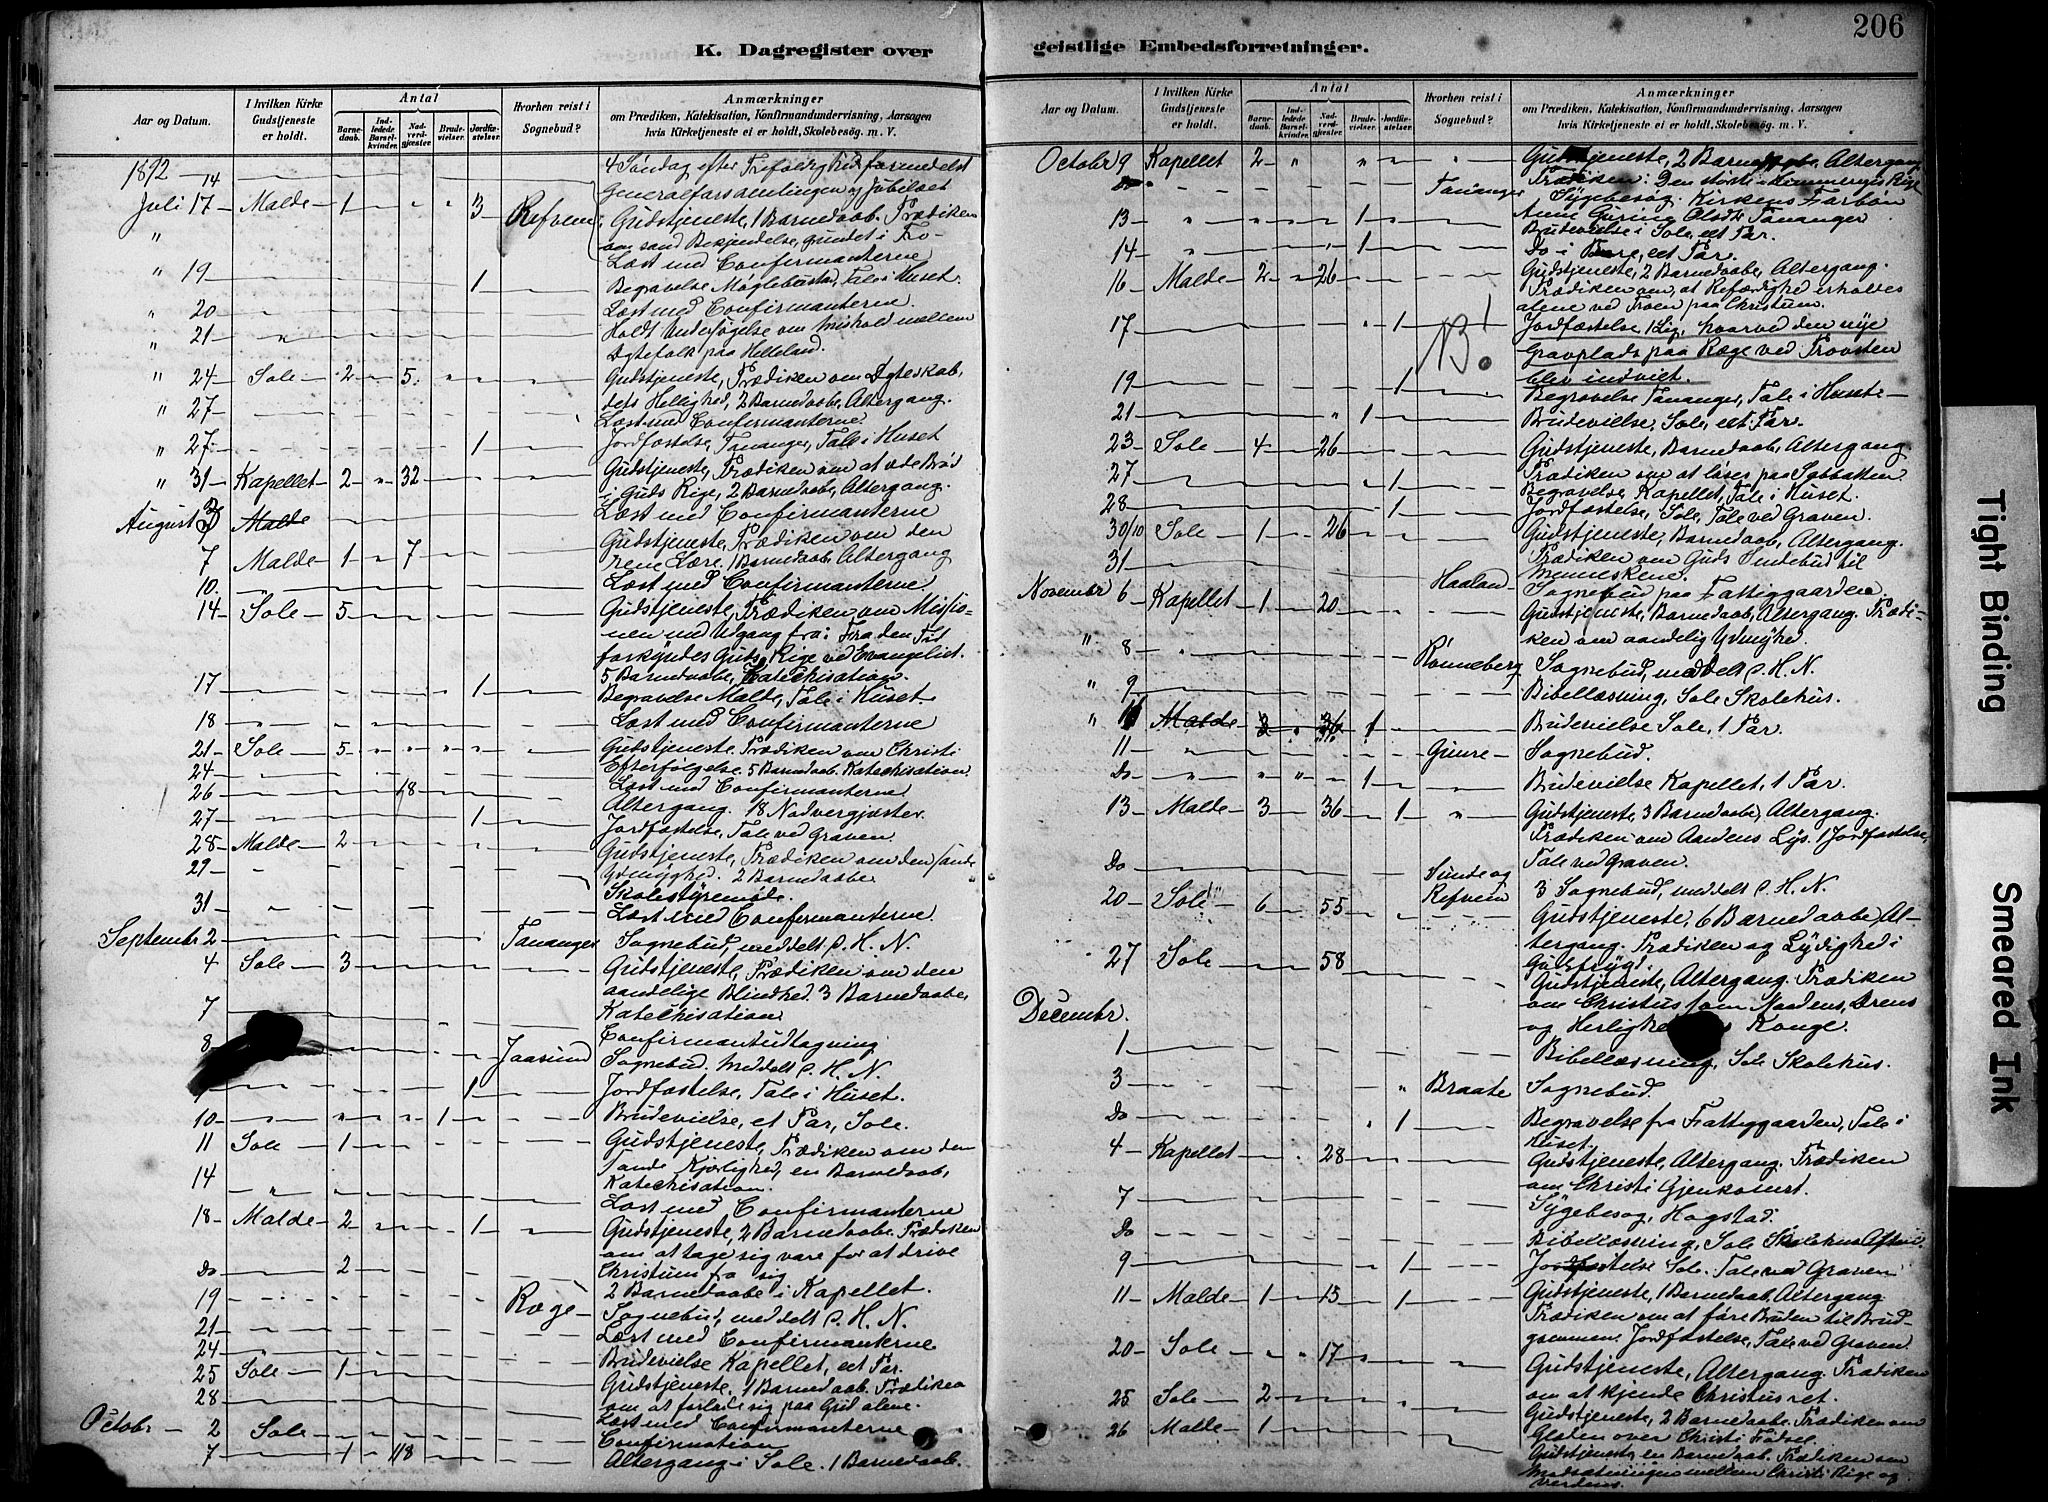 206
K. Dagregister over
geistlige Embedsforretninger.
Aar og Datum.
I hvilken Kirke Gudstjeneste er holdt.
Antal
Barnedaab.
Indledede Barselkvinder.
Nadverdgjæster.
Brudevielser.
Jordfæstelser.
Hvorhen reist i Sognebud?
Anmærkninger
om Prædiken, Katekisation, Konfirmandundervisning, Aarsagen
hvis Kirketjeneste ei er holdt, Skolebesøg. m. V.
1892 14 4 Søndag efter
Generalforsamlingen og Jubilæet
Juli 17 Malde 1 3 Refvem Gudstjeneste, 1 Barnedaab. Prædiken
om sand Bekjendelse, grundet i Tro
" Læst med Confirmanterne
" 19 1 Begravelse Tale i Huset.
" 20 Læst med Confirmanterne.
" 21 Holdt Undersøgelse om Mishold mellem
Ægtefolk paa Helleland.
" 24 Sole 2 5 Gudstjeneste, Prædiken om Ægteskab,
dets Hellighed, 2 Barnedaabe, Altergang.
" 27 Læst med Confirmanterne
" 27 1 Jordfæstelse, Tananger, Tale i Huset
" 31 Kapellet 2 32 Gudstjeneste, Prædiken om at æde Brød
i Guds Rige, 2 Barnedaabe, Altergang.
August 3 Malde Læst med Confirmanterne
7 Malde 1 7 Gudstjeneste, Prædiken om den
rene Lære. 1 Barnedaab, Altergang
10 Læst med Confirmanterne.
14 Sole 5 Gudstjeneste, Prædiken om Missio-
nen med Udgang fra: Fra den Tid
forkyndes Guds Rige ved Evangeliet.
5 Barnedaabe, Katechisation
17 1 Begravelse Malde, Tale i Huset
18 Læst med Confirmanterne
21 Sole 5 Gudstjeneste. Prædiken om Christi
Efterfølgelse. 5 Barnedaab. Katechisation.
24 Læst med Confirmanterne
26 18 Altergang. 18 Nadvergjæster.
27 1 Jordfæstelse, Tale ved Graven.
28 Malde 2 Gudstjeneste, Prædiken om den sande
Ydmyghed. 2 Barnedaabe
29 Skolestyremøde.
31 Læst med Confirmanterne.
Septembr 2 Tananger Sognebud, meddelt S. H. N.
4 Sole 3 Gudstjeneste, Prædiken om den
aandelige Blindhed. 3 Barnedaabe,
Katechisation
7 Confirmantudtagning
8 Jaasund Sognebud. Meddelt S. H. N.
1 Jordfæstelse, Tale i Huset.
10 1 Brudevielse, et Par, Sole.
11 Sole 1 Gudstjeneste, Prædiken om den
sande Kjærlighed, en Barnedaab,
Katechisation.
14 Læst med Confirmanterne
18 Malde 2 1 Gudstjeneste, 2 Barnedaabe. Prædiken
om at tage sig vare for at drive
Christum fra sig
Do 2 2 Barnedaabe i Kapellet.
19 Ræge Sognebud, meddelt S. H. N.
21 Læst med Confirmanterne
24 Brudevielse Kapellet, eet Par.
25 Sole 1 Gudstjeneste. 1 Barnedaab. Prædiken
om at forlade sig paa Gud alene.
28 Læst med Confirmanterne
Octobr 2 Sole Confirmation
7 1 118 Altergang i Sole. 1 Barnedaab.
Aar og Datum.
I hvilken Kirke Gudstjeneste er holdt.
Antal
Barnedaab.
Indledede Barselkvinder.
Nadverdgjæster.
Brudevielser.
Jordfæstelser.
Hvorhen reist i Sognebud?
Anmærkninger
om Prædiken, Katekisation, Konfirmandundervisning, Aarsagen
hvis Kirketjeneste ei er holdt, Skolebesøg. m. V.
Octobr 9 Kapellet 2 Gudstjeneste, 2 Barnedaabe, Altergang
Prædiken: Den største i Himmeriges Rige
Do Tananger Sygebesøg. Kirkens Forbøn
Anne Guring Olsdtr Tananger
13 1 Brudevielse i Sole, eet Par.
14 1 Do i eet Par.
16 Malde 2 26 Gudstjeneste, 2 Barnedaabe, Altergang.
Prædiken om, at Retfærdighed erholdes
alene ved Troen paa Christum.
17 1 NB! Jordfæstelse 1 Lig, hvorved den nye
Gravplads paa Ræge ved Provsten
blev indviet.
19 1 Begravelse Tananger, Tale i Huset
21 1 Brudevielse, Sole, eet Par.
23 Sole 4 26 Gudstjeneste, Barnedaab, Altergang
Prædiken om at løses paa Sabbatten.
27 1 Begravelse, Kapellet, Tale i Huset.
28 1 Jordfæstelse, Sole, Tale ved Graven.
30/10 Sole 1 26 Gudstjeneste, Barnedaab, Altergang.
Prædiken om Guds Sendebud til
Menneskene.
31 Haaland Sognebud paa Fattiggaarden.
November 6 Kapellet 1 20 Gudstjeneste, Barnedaab, Altergang. Prædi-
ken om aandelig Ydmyghed.
" 8 Rønneberg Sognebud, meddelt S. H. N.
" 9 Bibellæsning, Sole Skolehus.
" Malde 1 Brudevielse Sole, 1 Par.
11 Sognebud.
Do 1 Brudevielse Kapellet, 1 Par.
13 Malde 3 36 1 Gudstjeneste, 3 Barnedaabe, Altergang.
Prædiken om Aandens Lys. 1 Jordfæstelse,
Tale ved Graven.
Do Sunde og Refvem 3 Sognebud, meddelt S. H. N.
20 Sole 6 55 Gudstjeneste, 6 Barnedaabe, Al-
tergang. Prædiken og Lydighed i
Gudsfrygt.
27 Sole 58 Gudstjeneste, Altergang. Prædiken
om Christus som Naadens, Ærens
og Konge.
Decembr.
1 Bibellæsning, Sole Skolehus.
3 Braate Sognebud.
Do 1 Begravelse fra Fattiggaarden, Tale i
Huset.
4 Kapellet 28 Gudstjeneste, Altergang. Prædiken
om Christi Gjenkomst.
7 Sygebesøg, Hogstad.
Do Bibellæsning, Sole Skolehus Aften.
9 1 Jordfæstelse Sole. Tale ved Graven
11 Malde 1 15 1 Gudstjeneste, 1 Barnedaab, Altergang
Prædiken om at føre Bruden til Brud-
gommen. Jordfæstelse, Tale ved Graven.
20 Sole 17 Gudstjeneste, Altergang. Prædiken
om at kjende Christus ret.
25 Sole 2 Gudstjeneste, 2 Barnedaabe. Prædiken om
Glæden over Christi Fødsel.
26 Malde 1 Gudstjeneste, en Barnedaab. Prædiken om
Modsætningen mellem Christi Rige og
Verdens.
Tight Binding
Smeared Ink